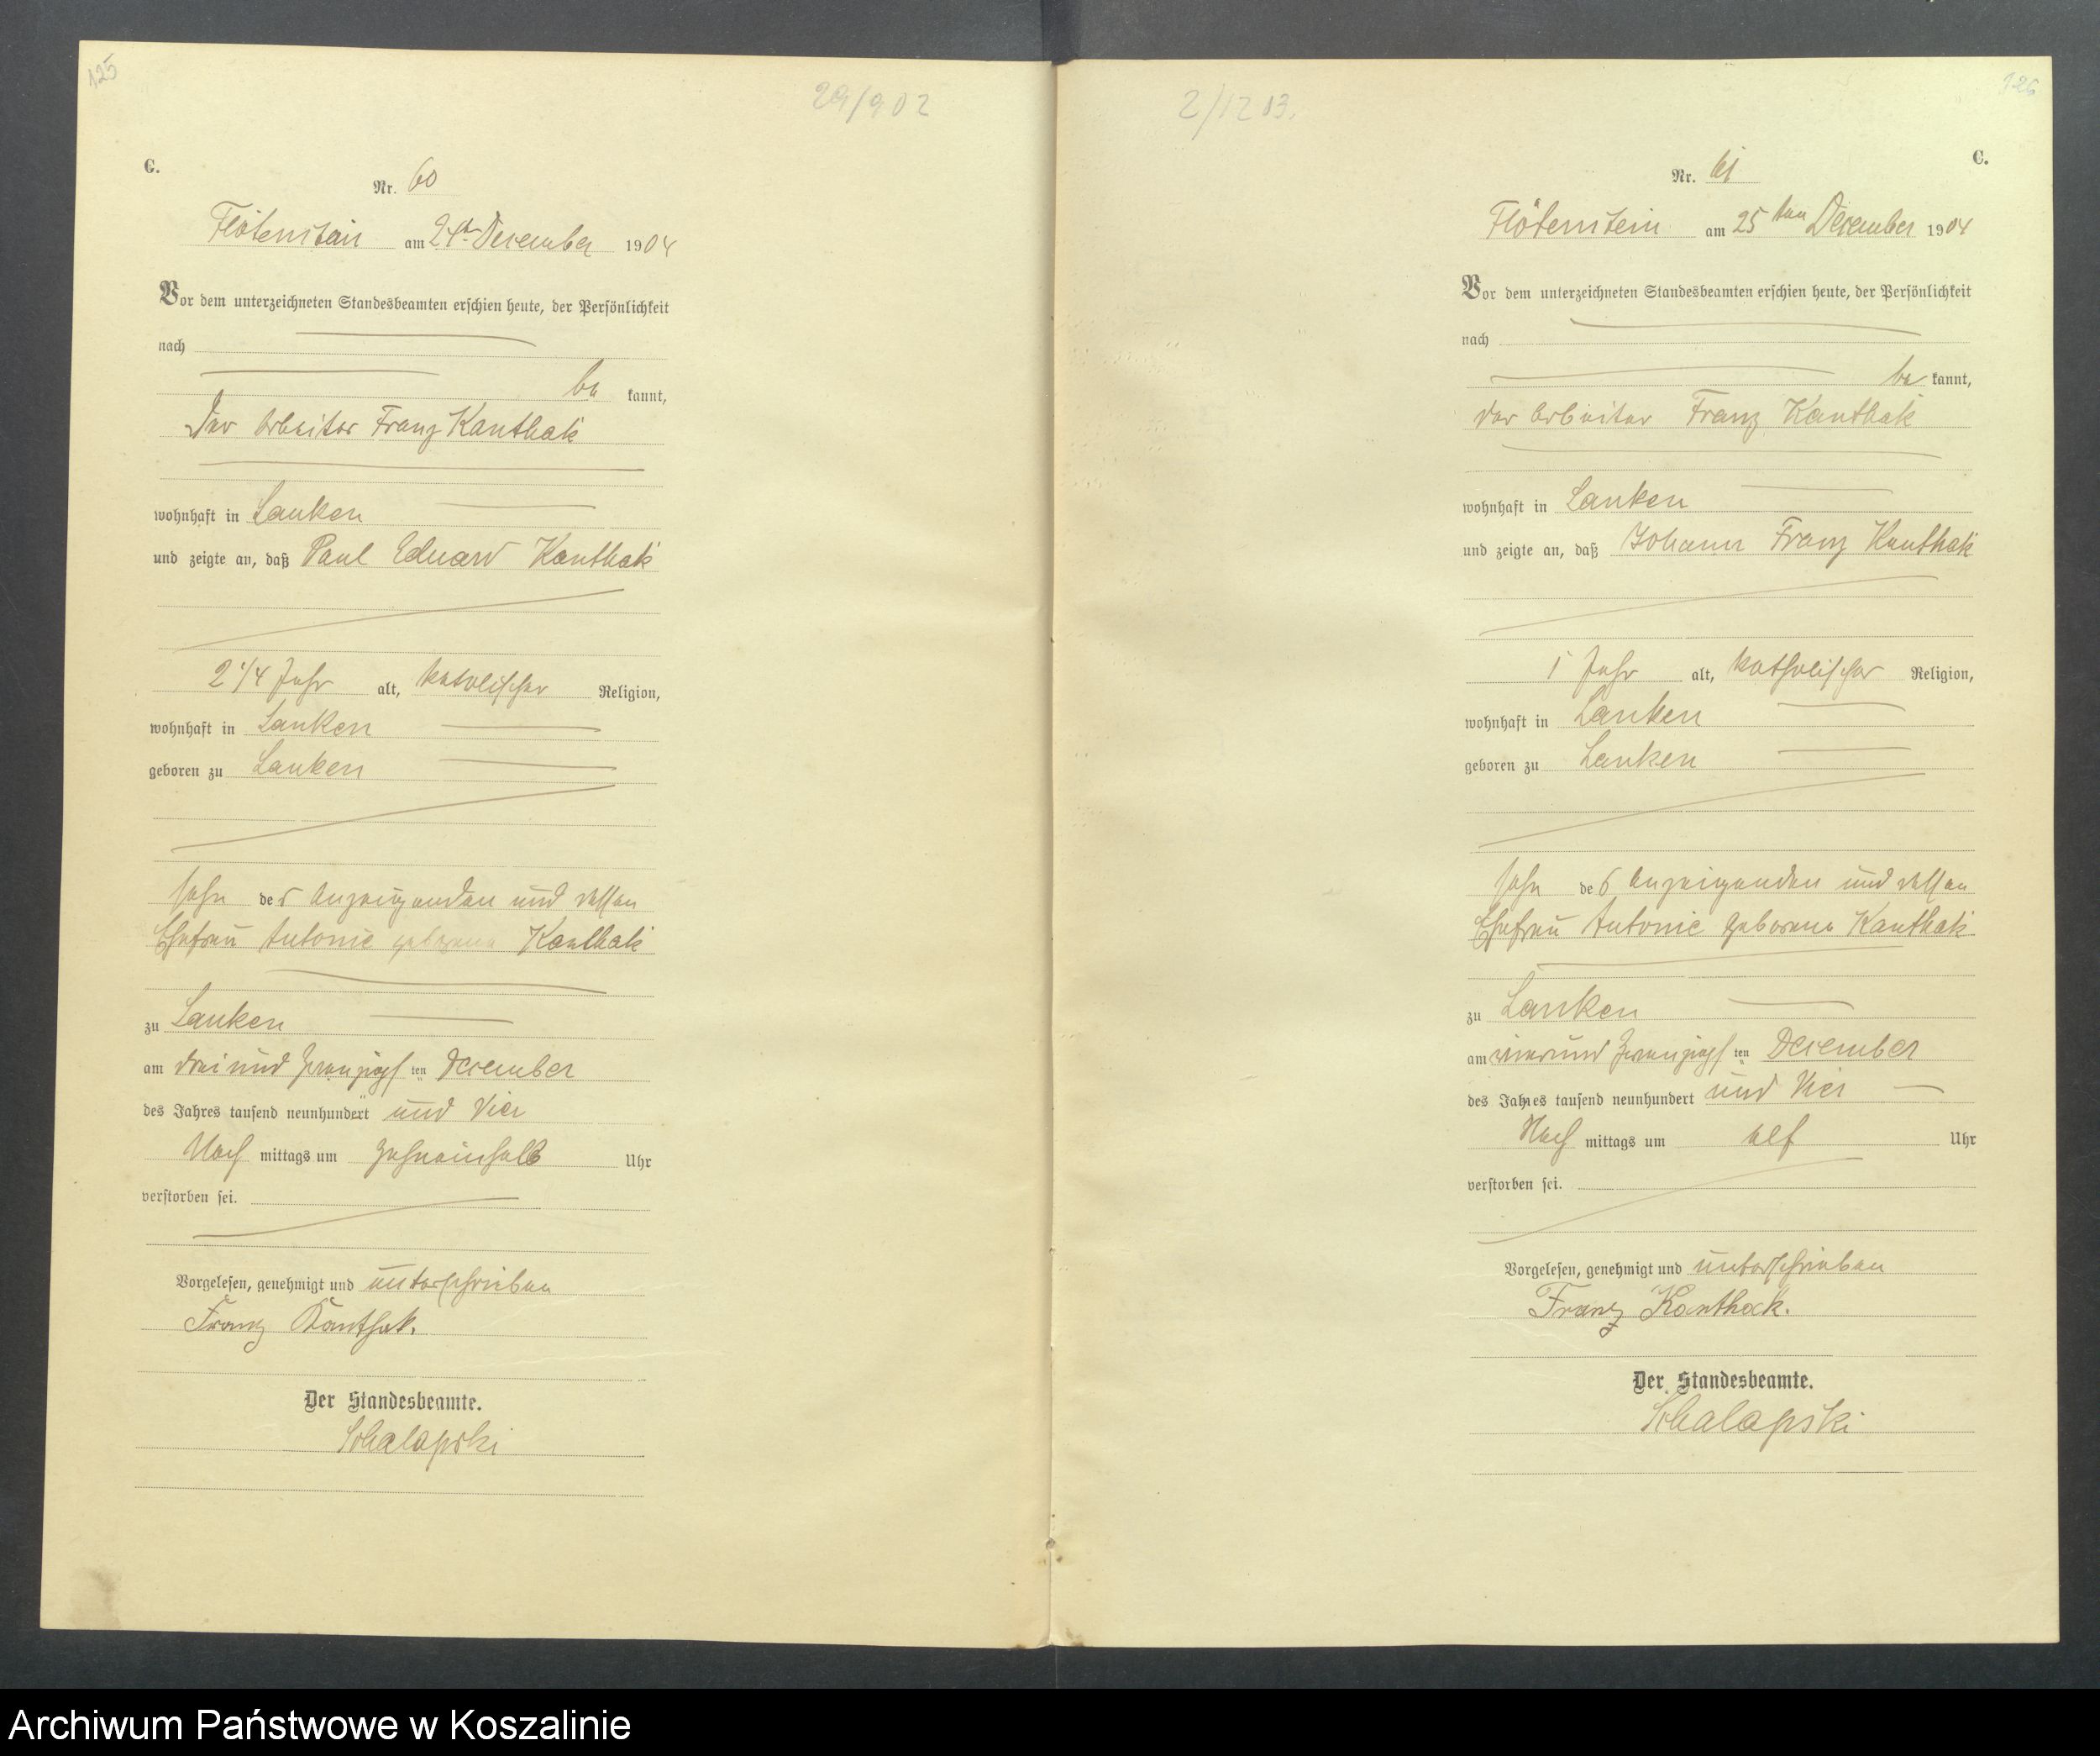 125
29/9 02
C.
Nr. 60
Flötenstein am 24ten December 1904
Vor dem unterzeichneten Standesbeamten erschien heute, der Persönlichkeit
nach
be kannt,
der Arbeiter Franz Kanthak
wohnhaft in Lanken
und zeigte an, daß Paul Eduard Kanthak
2 1/4 Jahr alt, katolischer Religion,
wohnhaft in Lanken
geboren zu Lanken
Sohn des Anzeigenden und dessen
Ehefrau Antonie geborene Kanthak
zu Lanken
am drei und zwanzigsten December
des Jahres tausend neunhundert und vier
Nach mittags um zehneinhalb Uhr
verstorben sei.
Vorgelesen, genehmigt und unterschrieben
Franz Kanthak.
Der Standesbeamte.
Schalapski
126
2/12 03.
C.
Nr. 61
Flötenstein am 25ten December 1904
Vor dem unterzeichneten Standesbeamten erschien heute, der Persönlichkeit
nach
be kannt,
der Arbeiter Franz Kanthak
wohnhaft in Lanken
und zeigte an, daß Johann Franz Kanthak
1 Jahr alt, katholischer Religion,
wohnhaft in Lanken
geboren zu Lanken
Sohn des Anzeigenden und dessen
Ehefrau Antonie geborene Kanthak
zu Lanken
am vierund zwanzigsten December
des Jahres tausend neunhundert und vier
Nach mittags um elf Uhr
verstorben sei.
Vorgelesen, genehmigt und unterschrieben
Franz Kanthack.
Der Standesbeamte.
Schalapski
Archiwum Państwowe w Koszalinie